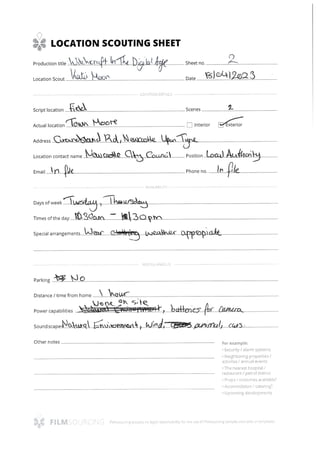 LOCATION SCOUTING SHEET
Production title Witchcraft In The Digital Age Sheet no. 2
Location Scout Kati Moon Date 18/04/2023
Script location Field Scenes 2
Actual location Town Moore Interior Exterior
Address Rd, Newcastle Upon Tyne
Location contact name Newcastle City Council Position Local Authority
Email In file Phone no. In file
Days of week Tuesday, Thursday
Times of the day 10:30am - 1:30pm
Special arrangements Wear weather appropiate
Parking No
Distance / time from home 1 hour
None on site
Power capabilities Natural Environment, batteries for camera
Soundscape Natural Environment, wind, animal, cars
Other notes
For example:
• Security / alarm systems
• Neighboring properties / activities / annual events
• The nearest hospital / restaurant / petrol station
• Props / costumes available?
• Accommodation / catering?
• Upcoming developments
FILMSOURCING